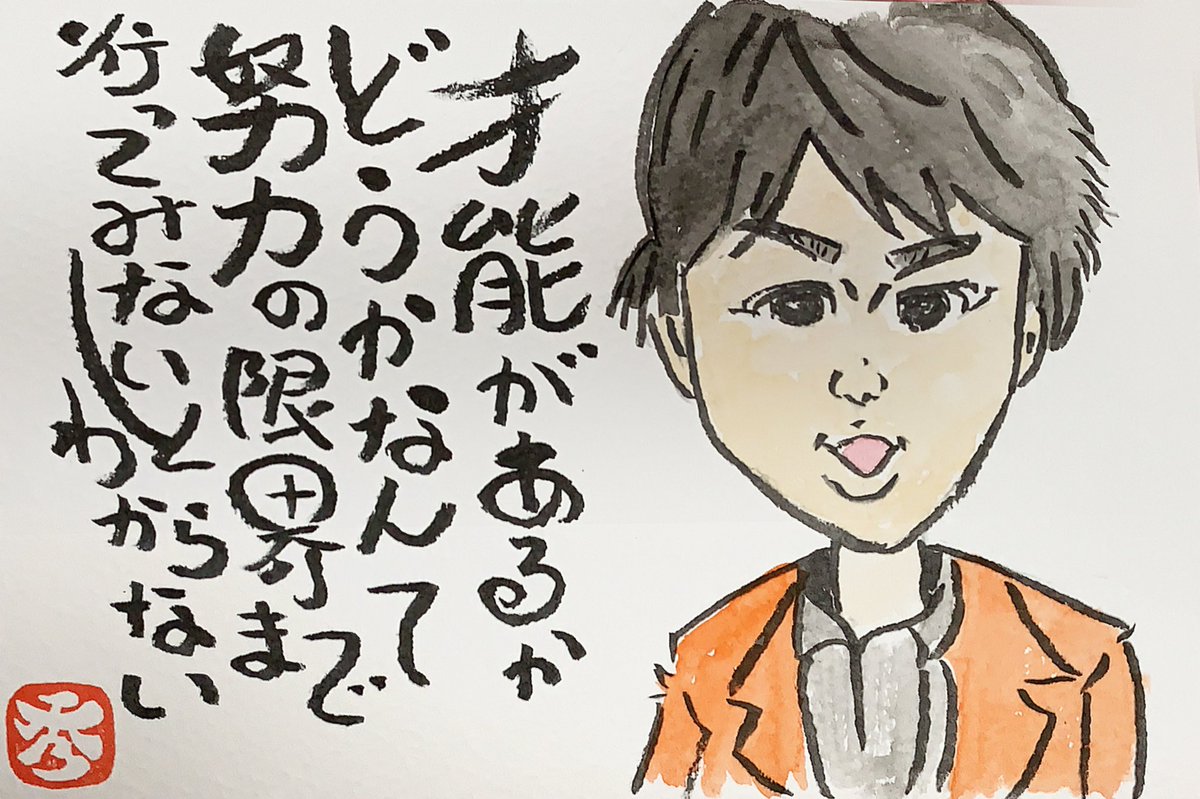 才能があるか
どうかなんて
努力の限界まで
行ってみないと
わからない